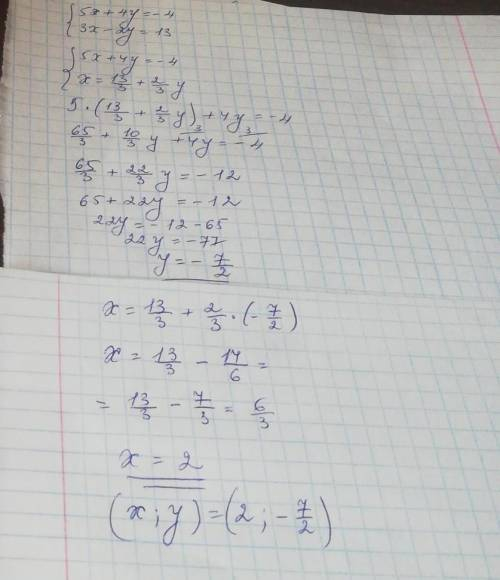 {5x + 4y = -4
{3x - 2y = 13
{5x + 4y = -4
{x = 13/3 + 2/3 y
5 · (13/3 + 2/3 y) + 4y = -4
65/3 + 10/3 y + 4y = -4
3 3
65/3 + 22/3 y = -12
65 + 22y = -12
22y = -12 - 65
22y = -77
y = - 7/2
x = 13/3 + 2/3 · (- 7/2)
x = 13/3 - 14/6 =
= 13/3 - 7/3 = 6/3
x = 2
(x ; y) = (2 ; - 7/2)